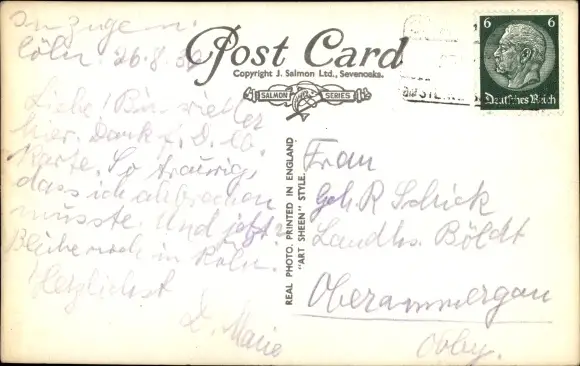 Post Card
Copyright J. Salmon Ltd., Sevenoaks.
SALMON SERIES
6 6
Deutsches Reich
Cöln. 26.8.
Liebe! Bin wieder
hier. Dank f. D. lb.
Karte. So traurig,
dass ich abbrechen
musste. Und jetzt?
Bleibe noch in Köln.
Herzlichst
D. Marie
REAL PHOTO. PRINTED IN ENGLAND
"ART SHEEN" STYLE.
Frau
Geh. R Schick
Landhs. Böldt
Oberammergau
Obby.